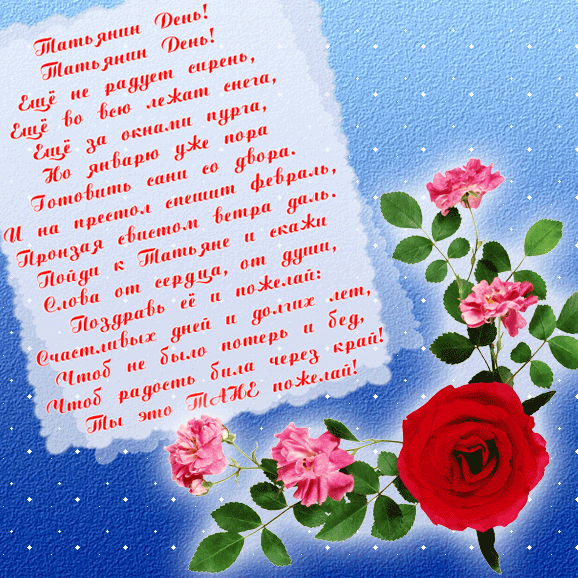 Татьянин День!
Татьянин День!
Ещё не радует сирень,
Ещё во всю лежат снега,
Ещё за окнами пурга,
Но январю уже пора
Готовить сани со двора.
И на престол спешит февраль,
Пронзая свистом ветра даль.
Пойди к Татьяне и скажи
Слова от сердца, от души,
Поздравь её и пожелай:
Счастливых дней и долгих лет,
Чтоб не было потерь и бед,
Чтоб радость била через край!
Ты это ТАНЕ пожелай!